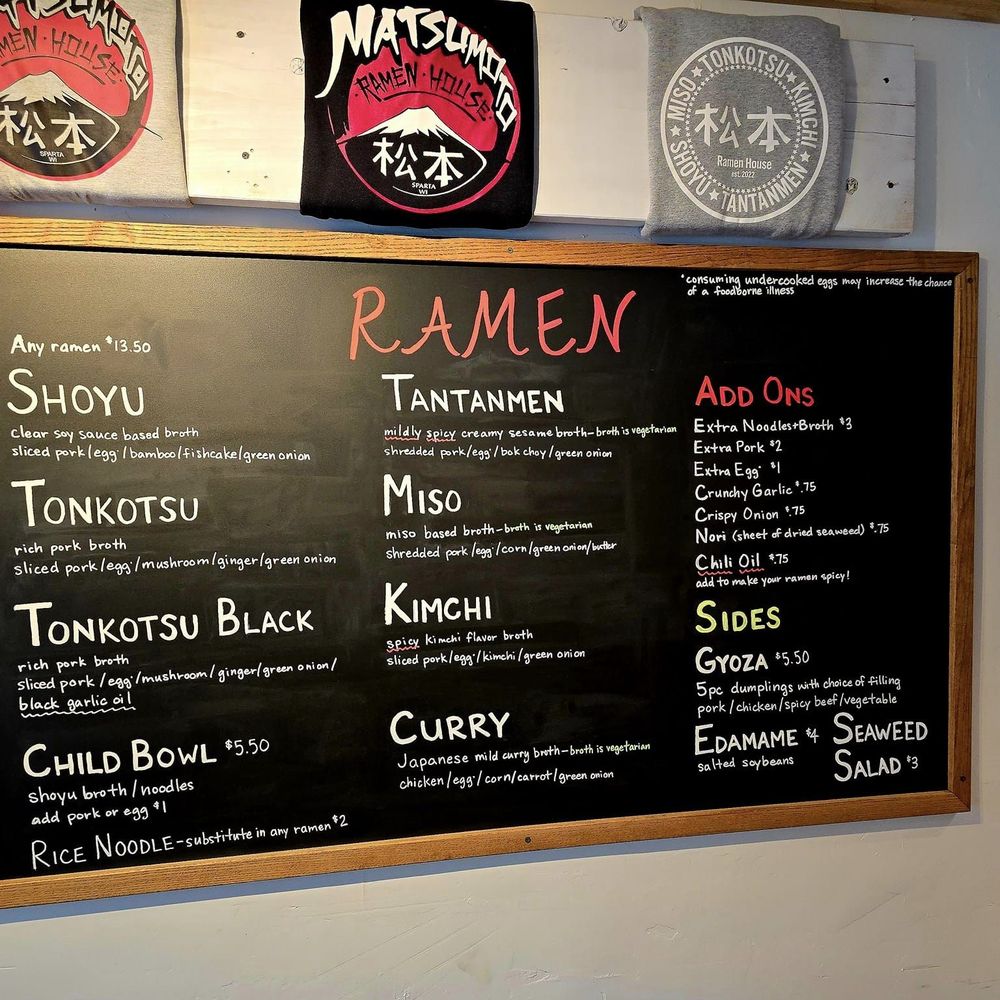 MATSUMOTO
RAMEN HOUSE
松本
SPARTA
WI
MATSUMOTO
RAMEN HOUSE
松本
SPARTA
WI
MISO ★ TONKOTSU ★ KIMCHI ★ TANTANMEN ★ SHOYU ★
松本
Ramen House
est. 2022
*consuming undercooked eggs may increase the chance
of a foodborne illness
RAMEN
Any ramen $13.50
SHOYU
clear soy sauce based broth
sliced pork/egg*/bamboo/fishcake/green onion
TONKOTSU
rich pork broth
sliced pork/egg*/mushroom/ginger/green onion
TONKOTSU BLACK
rich pork broth
sliced pork/egg*/mushroom/ginger/green onion/
black garlic oil
CHILD BOWL $5.50
shoyu broth/noodles
add pork or egg $1
RICE NOODLE-substitute in any ramen $2
TANTANMEN
mildly spicy creamy sesame broth-broth is vegetarian
shredded pork/egg*/bok choy/green onion
MISO
miso based broth-broth is vegetarian
shredded pork/egg*/corn/green onion/butter
KIMCHI
spicy kimchi flavor broth
sliced pork/egg*/kimchi/green onion
CURRY
Japanese mild curry broth-broth is vegetarian
chicken/egg*/corn/carrot/green onion
ADD ONS
Extra Noodles+Broth $3
Extra Pork $2
Extra Egg* $1
Crunchy Garlic $.75
Crispy Onion $.75
Nori (sheet of dried seaweed) $.75
Chili Oil $.75
add to make your ramen spicy!
SIDES
GYOZA $5.50
5pc dumplings with choice of filling
pork/chicken/spicy beef/vegetable
EDAMAME $4
salted soybeans
SEAWEED
SALAD $3